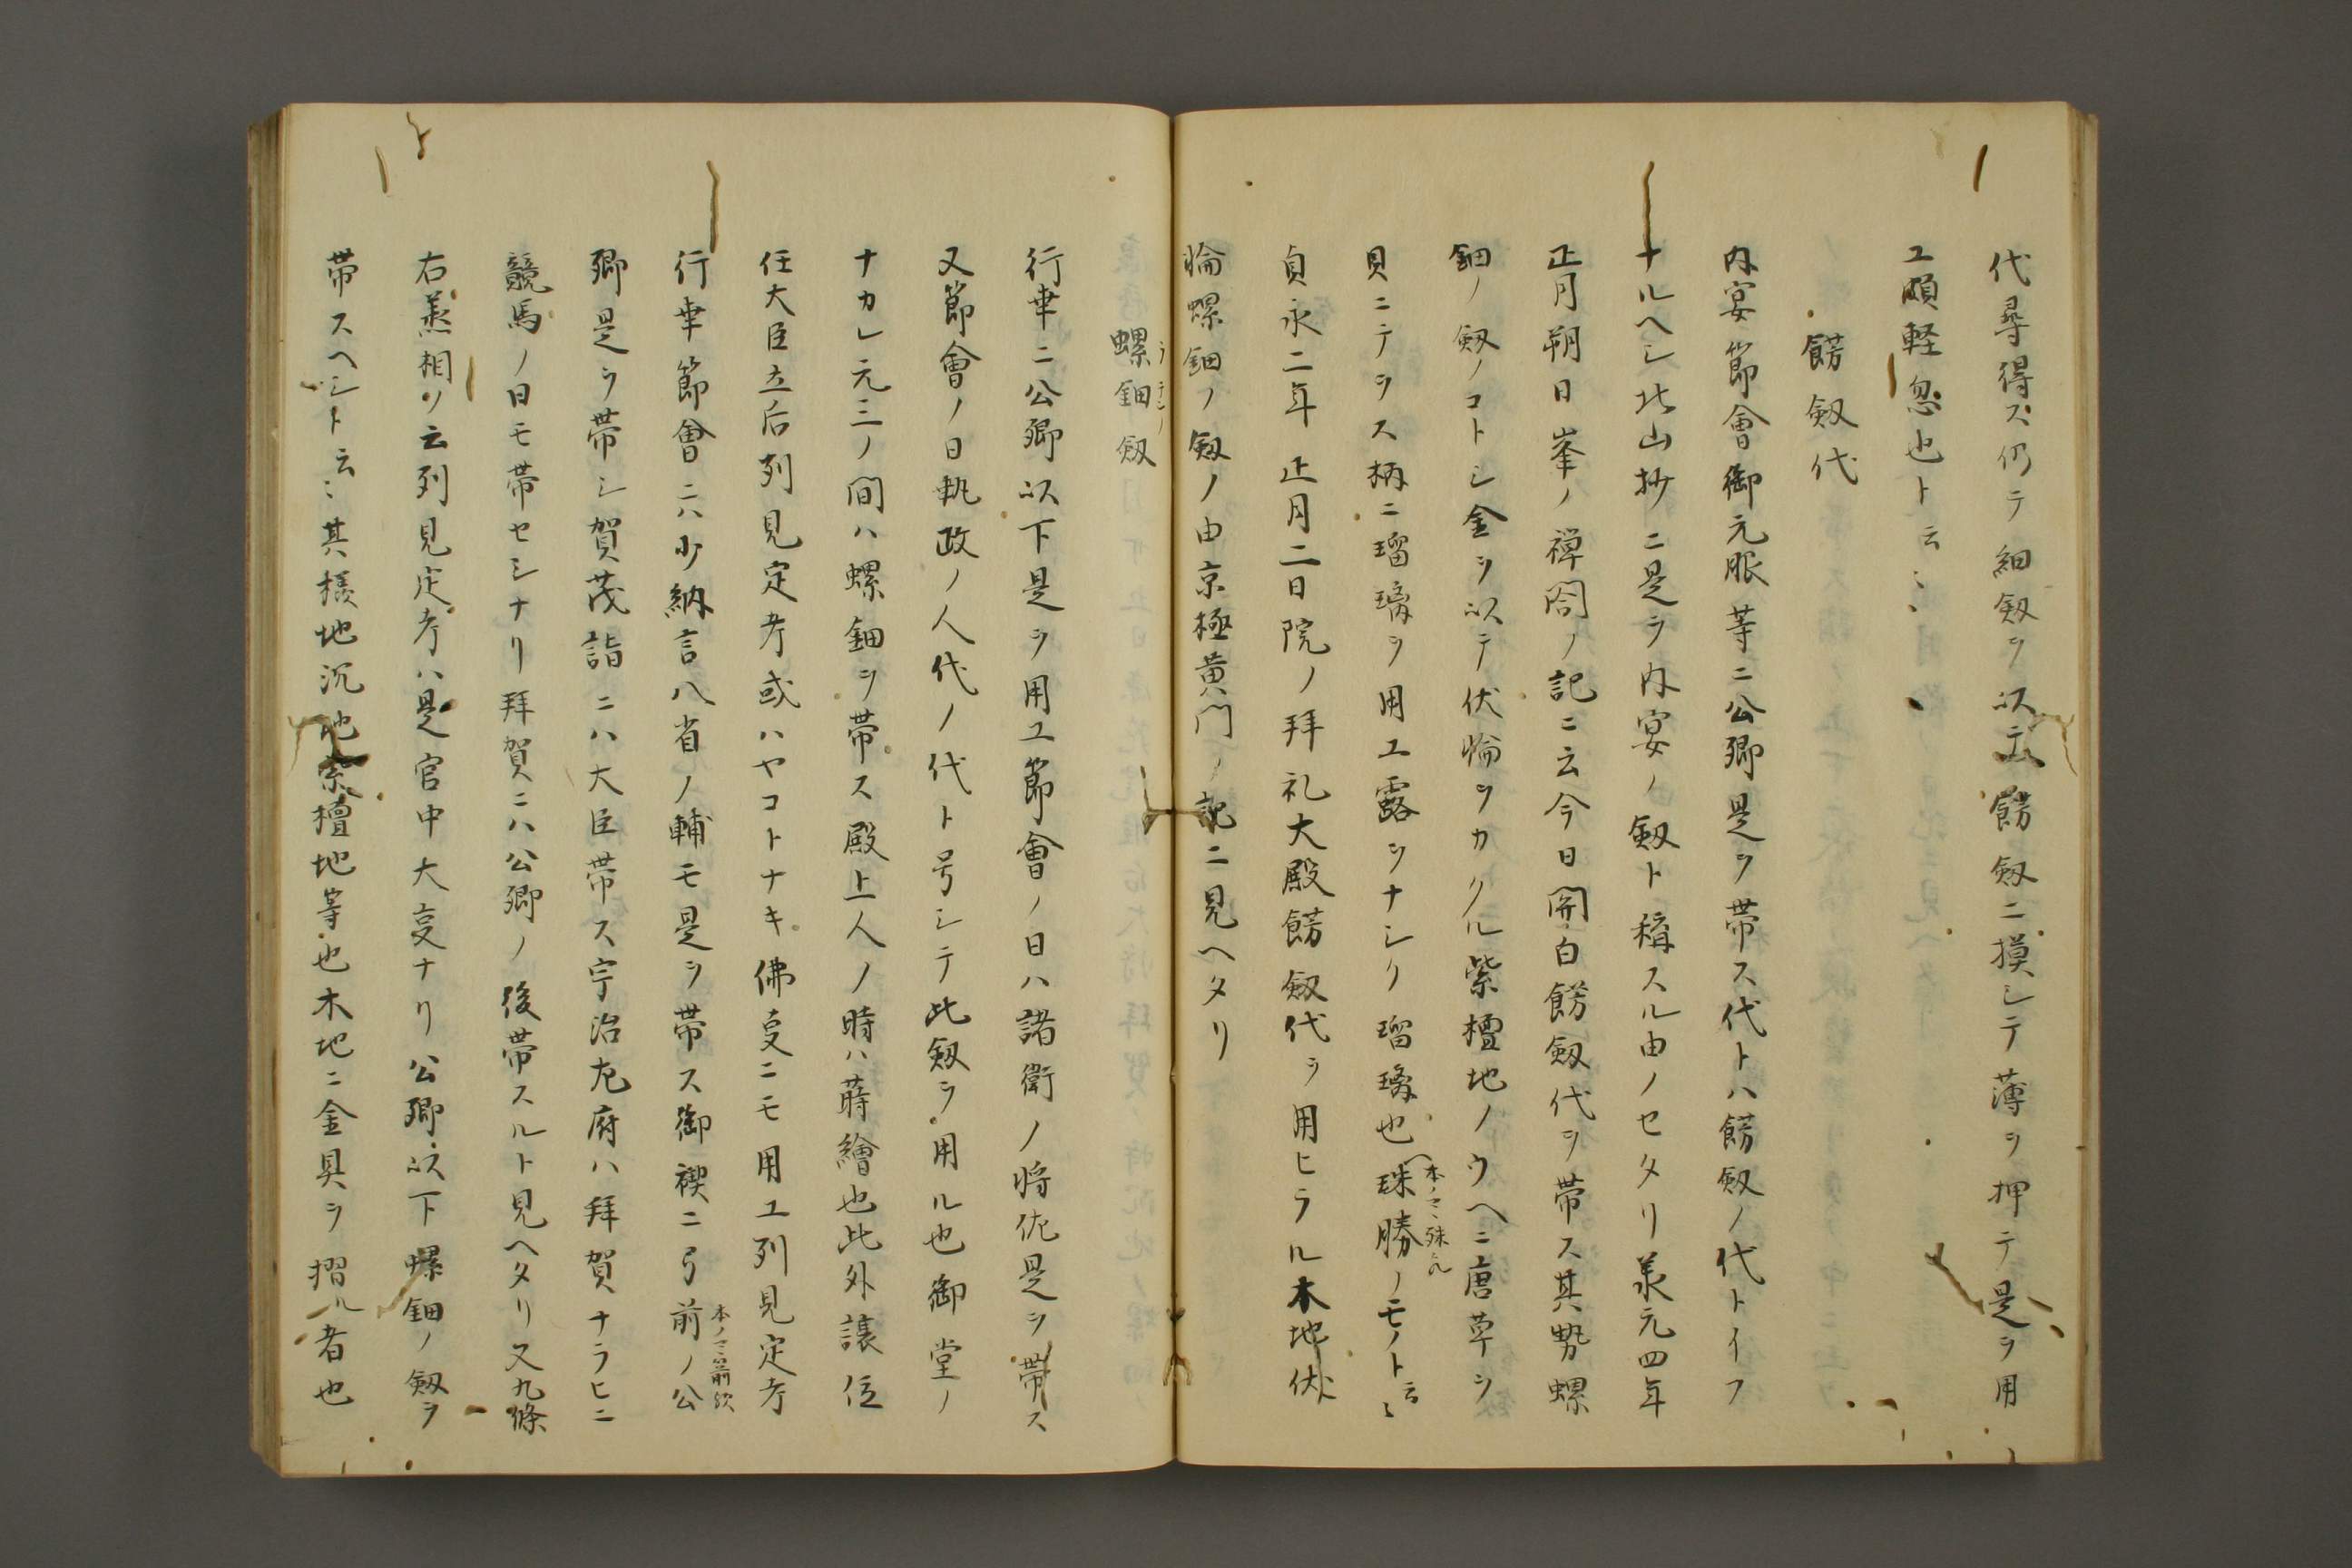 代尋得ス仍テ細釼ヲ以テ餝釼ニ摸シテ薄ヲ押テ是ヲ用
エ頗軽忽也ト云〻
餝釼代
内宴節會御元服等ニ公卿是ヲ帯ス代トハ餝釼ノ代トイフ
ナルヘシ北山抄ニ是ヲ内宴ノ釼ト稱スル由ノセタリ承元四年
正月朔日峯ノ禅閤ノ記ニ云今日関白餝釼代ヲ帯ス其勢螺
鈿ノ釼ノコトシ金ヲ以テ伏輪ヲカクル紫檀地ノウヘニ唐草ヲ
貝ニテヲス柄ニ瑠璃ヲ用エ露ヲナシク瑠璃也珠勝ノモノト云〻
本ノマヽ殊カ
貞永二年正月二日院ノ拜礼大殿餝釼代ヲ用ヒラル木地伏
輪螺鈿ノ釼ノ由京極黄門ノ記ニ見ヘタリ
螺鈿釼
ラテンノ
行幸ニ公卿以下是ヲ用エ節會ノ日ハ諸衛ノ将佐是ヲ帯ス
又節會ノ日執政ノ人代ノ代ト号シテ此釼ヲ用ル也御堂ノ
ナカレ元三ノ間ハ螺鈿ヲ帯ス殿上人ノ時ハ蒔繪也此外譲位
任大臣立后列見定考或ハヤコトナキ佛事ニモ用エ列見定考
行幸節會ニハ少納言八省ノ輔モ是ヲ帯ス御禊ニ弓前ノ公
本ノマヽ箭欤
卿是ヲ帯シ賀茂詣ニハ大臣帯ス宇治左府ハ拜賀ナラヒニ
競馬ノ日モ帯セシナリ拜賀ニハ公卿ノ後帯スルト見ヘタリ又九條
右丞相ノ云列見定考ハ是官中大事ナリ公卿以下螺鈿ノ釼ヲ
帯スヘシト云〻其様地沉地紫檀地等也木地ニ金具ヲ摺ル者也